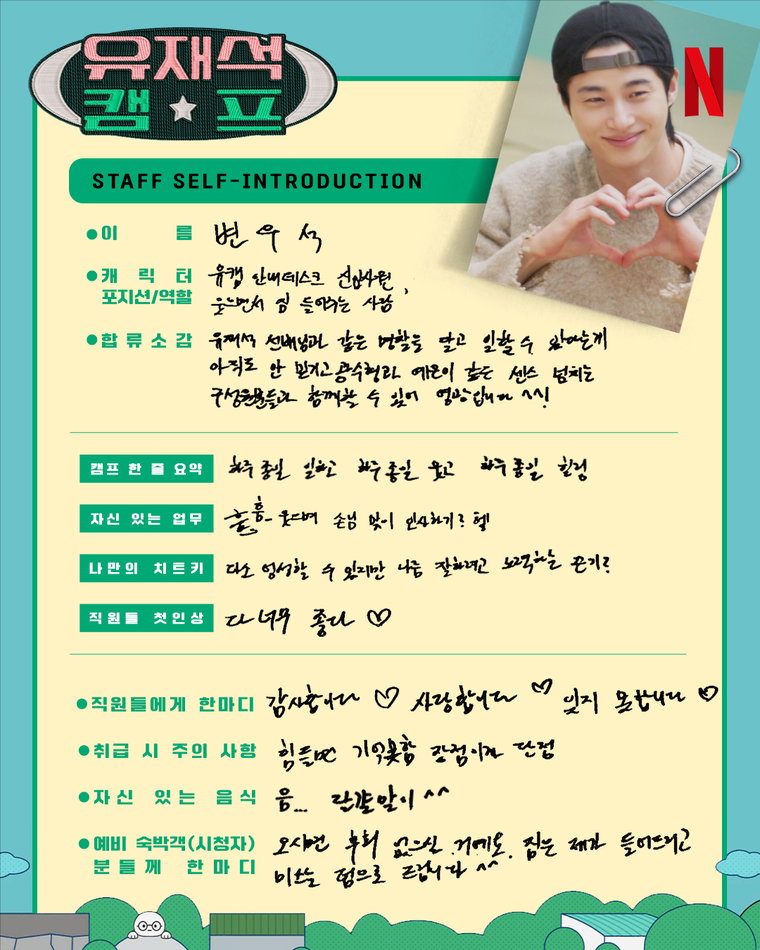 유재석
캠★프
N
STAFF SELF-INTRODUCTION
●이 름 변우석
●캐릭터 유캠 안내데스크 신입사원,
포지션/역할 웃으면서 짐 들어주는 사람
●합류소감 유재석 선배님과 같은 명찰을 달고 일할 수 있다는게
아직도 안 믿기고 광수형과 예은이 같은 센스 넘치는
구성원분들과 함께할 수 있어 영광입니다 ^^!
캠프 한 줄 요약 하루종일 일하고 하루종일 웃고 하루종일 힐링
자신 있는 업무 흠흠.. 웃으며 손님 맞이 인사하기? 헬
나만의 치트키 다소 엉성할 수 있지만 나름 잘하려고 노력하는 끈기?
직원들 첫인상 다 너무 좋다 ♡
●직원들에게 한마디 감사합니다 ♡ 사랑합니다 ♡ 잊지 못합니다 ♡
●취급 시 주의 사항 힘들면 기억못함 장점이자 단점
●자신 있는 음식 음... 단걀말이 ^^
●예비 숙박객(시청자) 오시면 후회 없으실 거예요. 짐은 제가 들어드리고
분들께 한마디 미소는 덤으로 드립니다 ^^